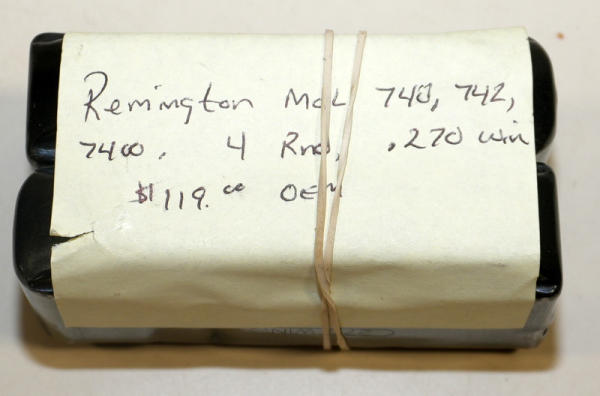 Remington Mdl 740, 742,
7400. 4 Rnd, .270 win
$119.00 OEM